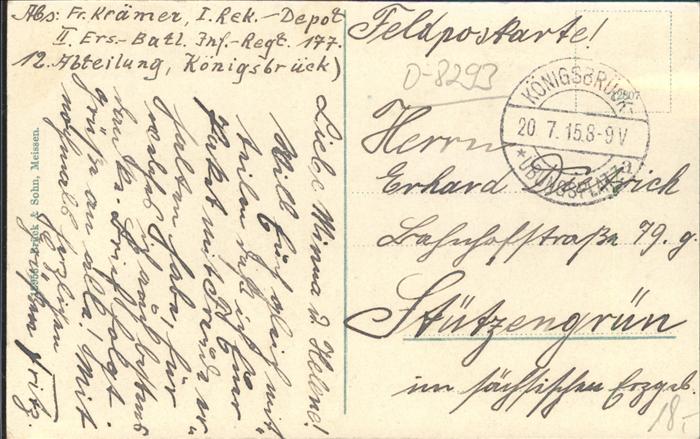 Abs: Fr. Krämer, I. Rek.-Depot
II. Ers.-Batl. Inf.-Regt. 177.
12. Abteilung, Königsbrück)
Feldpostkarte!
D-8293
KÖNIGSBRÜCK
20 7. 15. 8-9 V
* ÜBUNGSPLATZ a
Herrn
Erhard
Bahnhofstraße 79. g.
Stützengrün
im sächsischen Erzgeb.
18.-
Liebe Minna u. Helene!
Will Euch gleich mit
teilen daß ich Euer
Paket mit Freude er
halten habe, für
welches ich Euch bestens
danke. Brief folgt.
Grüße an alle! Mit
nochmals herzlichen
Grüßen Fritz.
Brück & Sohn, Meissen.